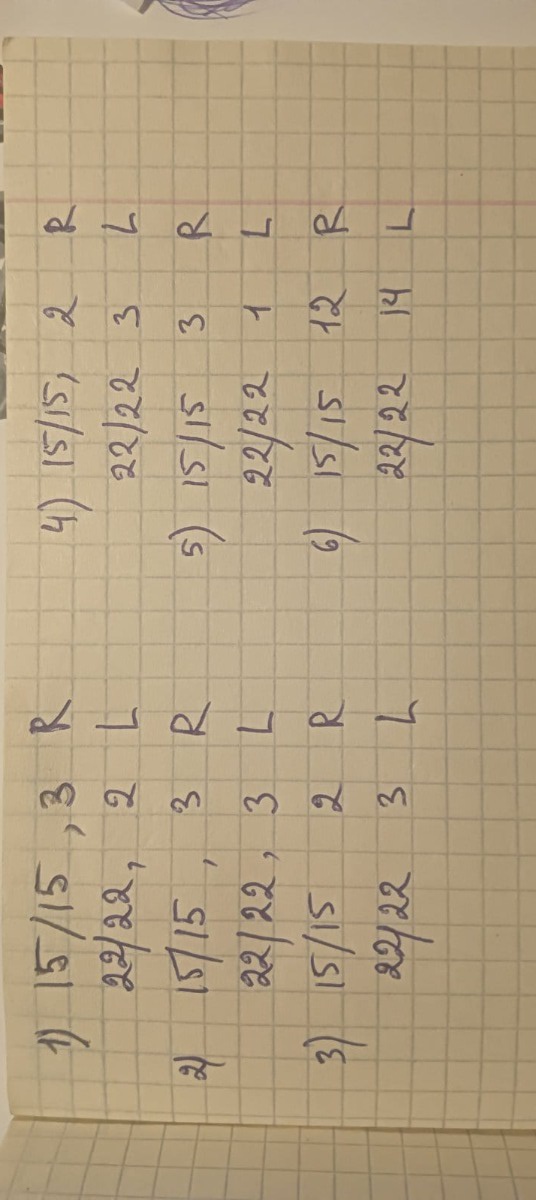 1) 15/15, 3 R
22/22, 2 L
2) 15/15, 3 R
22/22, 3 L
3) 15/15 2 R
22/22 3 L
4) 15/15, 2 R
22/22 3 L
5) 15/15 3 R
22/22 1 L
6) 15/15 12 R
22/22 14 L